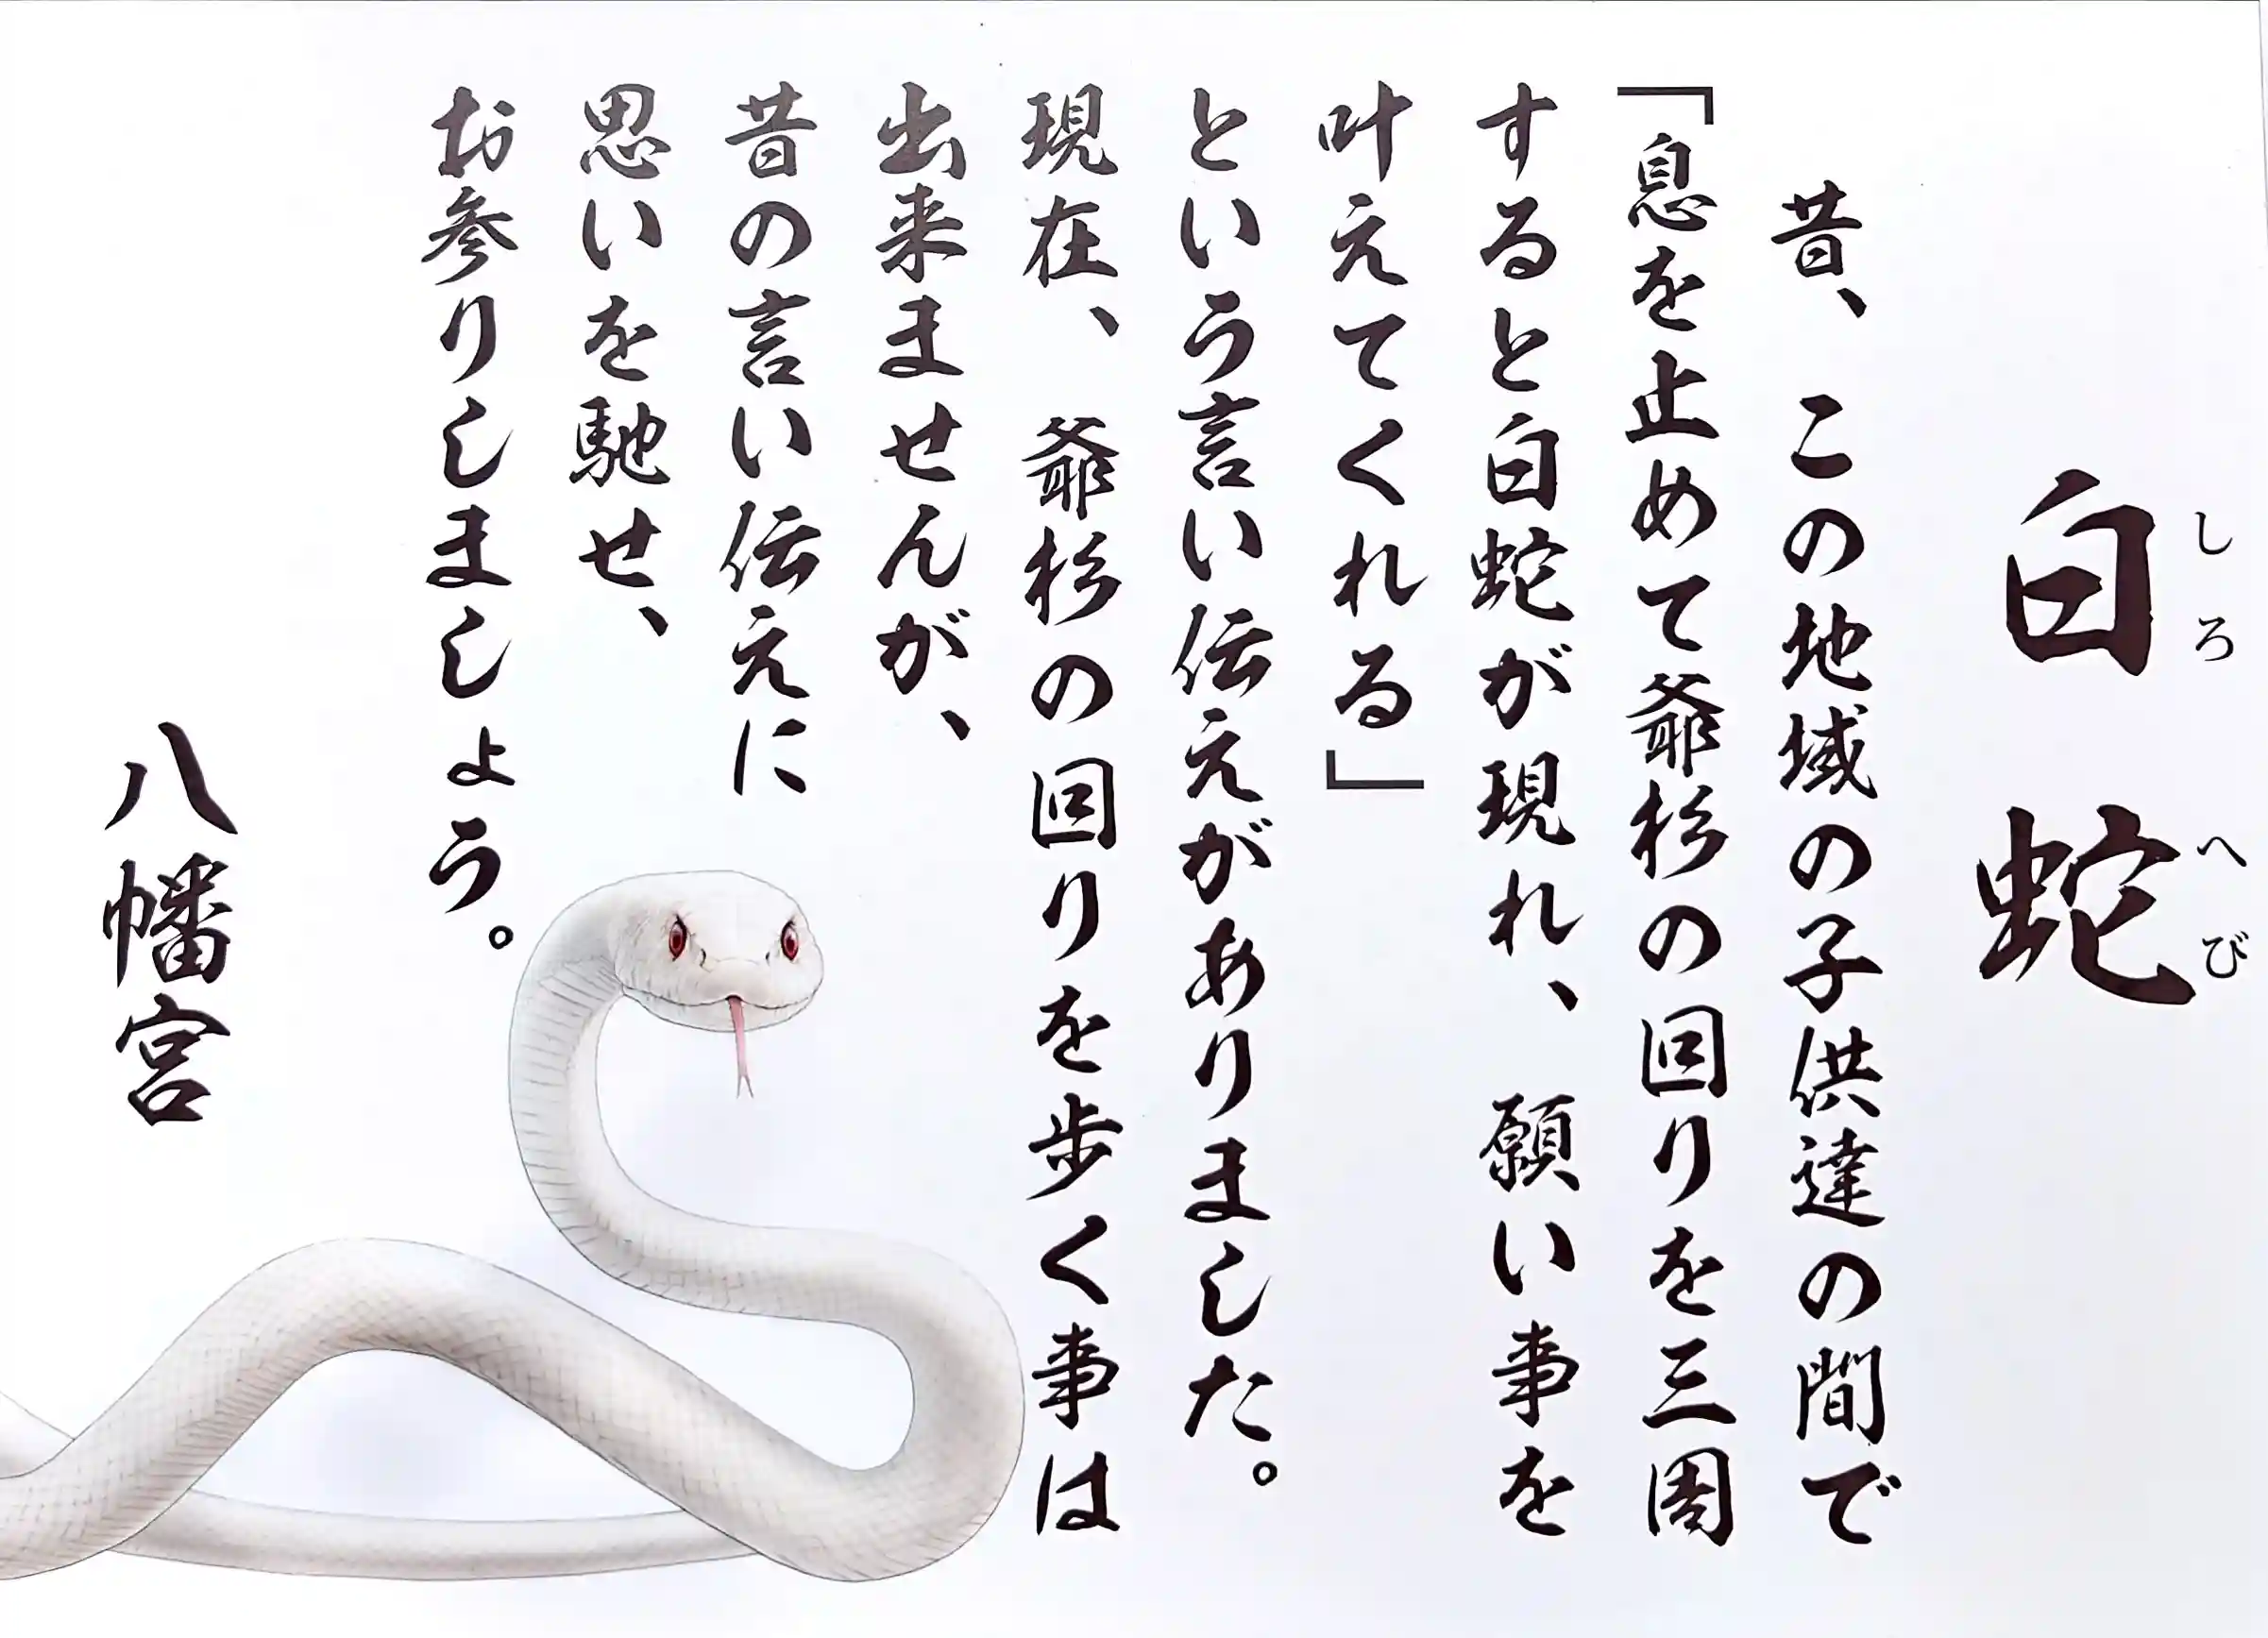 白蛇
しろへび
昔、この地域の子供達の間で
「息を止めて爺杉の回りを三周
すると白蛇が現れ、願い事を
叶えてくれる」
という言い伝えがありました。
現在、爺杉の回りを歩く事は
出来ませんが、
昔の言い伝えに
思いを馳せ、
お参りしましょう。
八幡宮